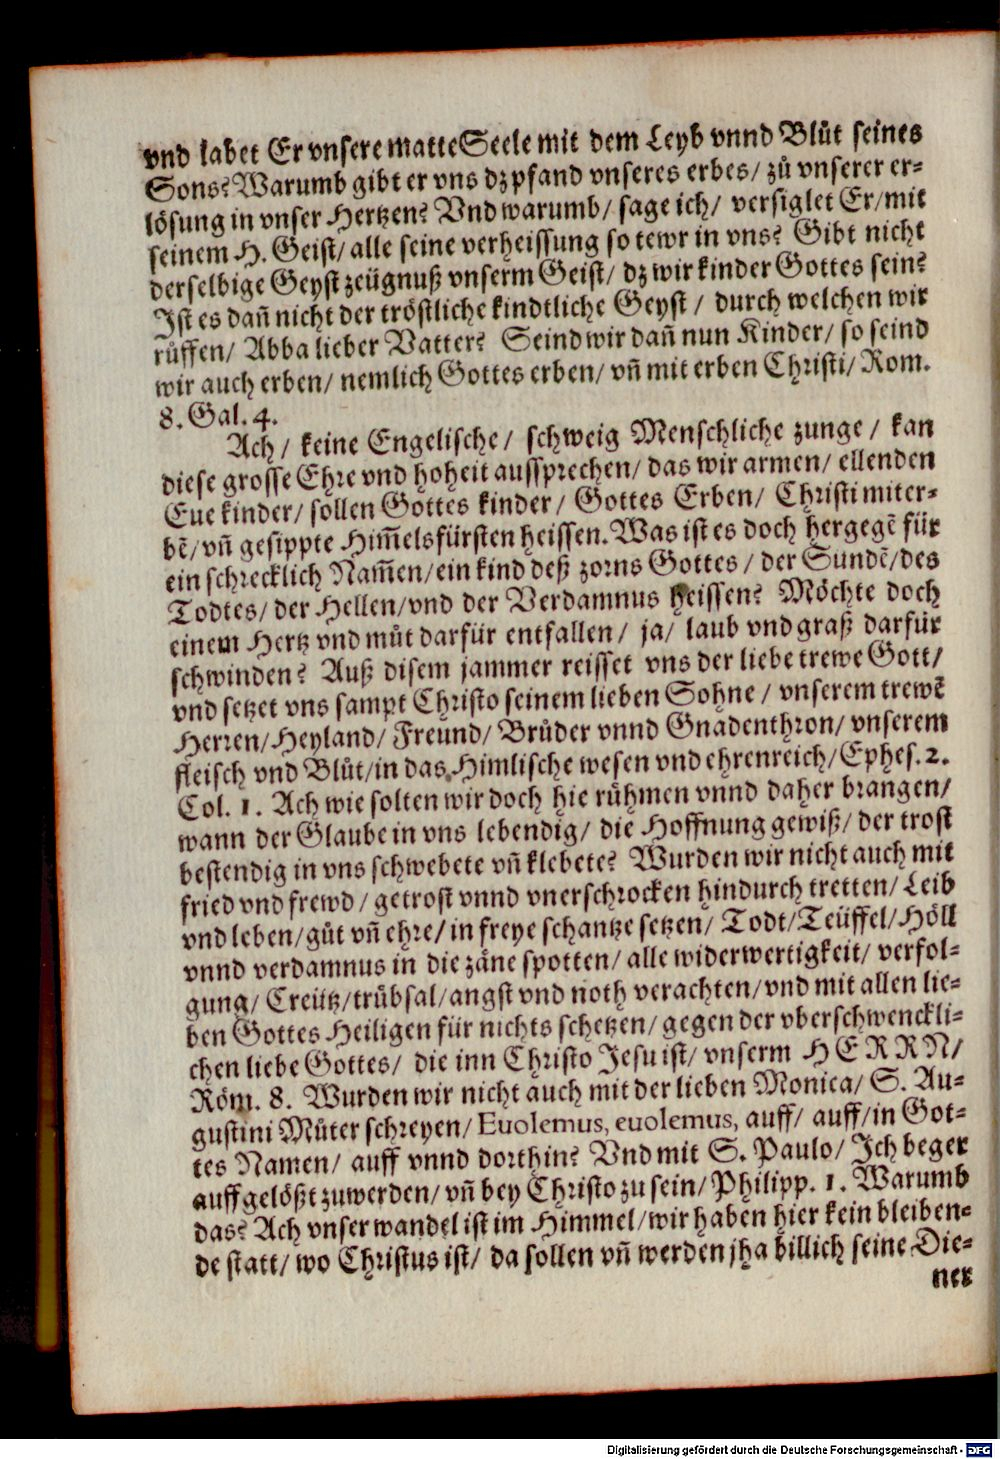 vnd labet Er vnsere matte Seele mit dem Leyb vnnd Blůt seines
Sons? Warumb gibt er vns dz pfand vnseres erbes/ zů vnserer er-
lösung in vnser Hertzen? Vnd warumb/ sage ich/ versiglet Er/ mit
seinem H. Geist/ alle seine verheissung so tewr in vns? Gibt nicht
derselbige Geyst zeügnuß vnserm Geist/ dz wir kinder Gottes sein?
Ist es dañ nicht der tröstliche kindtliche Geyst/ durch welchen wir
růffen/ Abba lieber Vatter? Seind wir dañ nun Kinder/ so seind
wir auch erben/ nemlich Gottes erben/ vñ mit erben Christi/ Rom.
8. Gal. 4.
Ach/ keine Engelische/ schweig Menschliche zunge/ kan
diese grosse Ehre vnd hoheit aussprechen/ das wir armen/ ellenden
Eue kinder/ sollen Gottes kinder/ Gottes Erben/ Christi miter-
bẽ/ vñ gesippte Him̃elsfürsten heissen. Was ist es doch hergegẽ für
ein schrecklich Nam̃en/ ein kind deß zorns Gottes/ der Sundẽ/ des
Todtes/ der Hellen/ vnd der Verdamnus heissen? Möchte doch
einem Hertz vnd můt darfür entfallen/ ja/ laub vnd graß darfür
schwinden? Auß disem jammer reisset vns der liebe trewe Gott/
vnd setzet vns sampt Christo seinem lieben Sohne/ vnserem trewẽ
Herren/ Heyland/ Freund/ Brůder vnnd Gnadenthron/ vnserem
fleisch vnd Blůt/ in das Himlische wesen vnd ehrenreich/ Ephes. 2.
Col. 1. Ach wie solten wir doch hie růhmen vnnd daher brangen/
wann der Glaube in vns lebendig/ die Hoffnung gewiß/ der trost
bestendig in vns schwebete vñ klebete? Wurden wir nicht auch mit
fried vnd frewd/ getrost vnnd vnerschrocken hindurch tretten/ Leib
vnd leben/ gůt vñ ehre/ in freye schantze setzen/ Todt/ Teüffel/ Höll
vnnd verdamnus in die zäne spotten/ alle widerwertigkeit/ verfol-
gung/ Creütz/ trůbsal/ angst vnd noth verachten/ vnd mit allen lie-
ben Gottes Heiligen für nichts schetzen/ gegen der vberschwenckli-
chen liebe Gottes/ die inn Christo Jesu ist/ vnserm HERRN/
Röm. 8. Wurden wir nicht auch mit der lieben Monica/ S. Au-
gustini Můter schreyen/ Euolemus, euolemus, auff/ auff/ in Got-
tes Namen/ auff vnnd dorthin? Vnd mit S. Paulo/ Ich beger
auffgelößt zuwerden/ vñ bey Christo zu sein/ Philipp. 1. Warumb
das? Ach vnser wandel ist im Himmel/ wir haben hier kein bleiben-
de statt/ wo Christus ist/ da sollen vñ werden jha billich seine Die-
ner
Digitalisierung gefördert durch die Deutsche Forschungsgemeinschaft - DFG